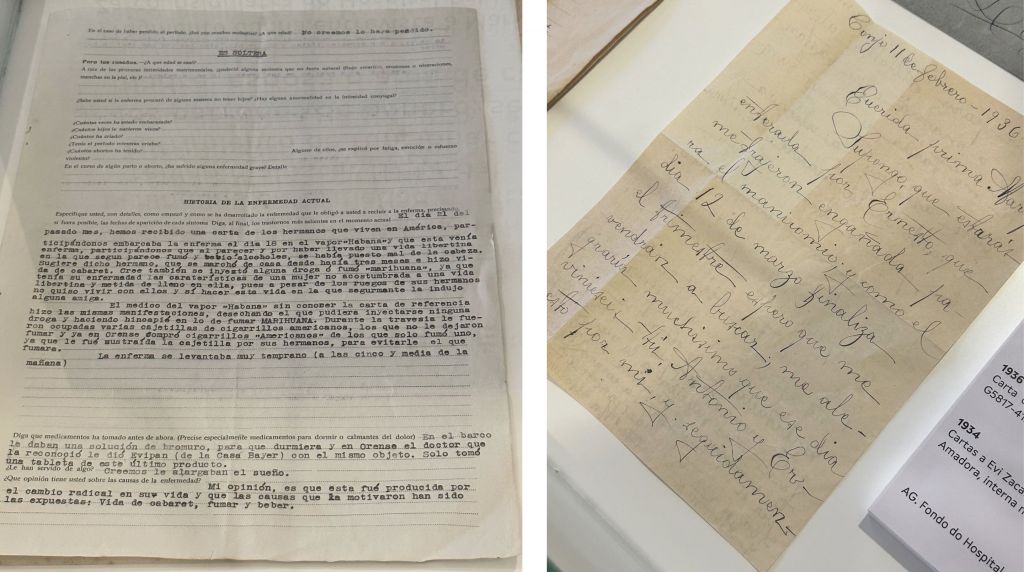 En el caso de haber perdido el período, ¿fué con muchas molestias? ¿A qué edad? No creemos lo haya perdido.
ES SOLTERA
Para las casadas.—¿A qué edad se casó?
A raíz de las primeras intimidades matrimoniales, ¿padeció alguna molestia que no fuera natural (flujo amarillo, escozores o ulceraciones,
manchas en la piel, etc.)?
¿Sabe usted si la enferma procuró de alguna manera no tener hijos? ¿Hay alguna anormalidad en la intimidad conyugal?
¿Cuántas veces ha estado embarazada?
¿Cuántos hijos le nacieron vivos?
¿Cuántos ha criado?
¿Tenía el período mientras criaba?
¿Cuántos abortos ha tenido? Alguno de ellos, ¿se explicó por fatiga, emoción o esfuerzo
violento?
En el curso de algún parto o aborto, ¿ha sufrido alguna enfermedad grave? Detalle
HISTORIA DE LA ENFERMEDAD ACTUAL
Especifique usted, con detalles, cómo empezó y cómo se ha desarrollado la enfermedad que le obligó a usted a recluir a la enferma, precisando,
si fuera posible, las fechas de aparición de cada síntoma. Diga, al final, los trastornos más salientes en el momento actual El día 21 del
pasado mes, hemos recibido una carta de los hermanos que viven en América, par-
ticipándonos embarcaba la enferma el día 18 en el vapor «Habana» y que esta venía
enferma, participándonos que al parecer y por haber llevado una vida libertina
en la que segun parece fumó y bebio alcoholes, se había puesto mal de la cabeza.
Sugiere dicho hermano, que se marchó de casa desde hacía tres meses e hizo vi-
da de cabaret. Cree también se inyectó alguna droga ó fumó «marihuana», ya que
tenía su enfermedad las caraterísticas de una mujer no acostumbrada a una vida
libertina y metida de lleno en ella, pues a pesar de los ruegos de sus hermanos
no quiso vivir con ellos y sí hacer esta vida en la que segurmante la indujo
alguna amiga.
El medico del vapor «Habana» sin conocer la carta de referencia
hizo las mismas manifestaciones, desechando el que pudiera inyectarse ninguna
droga y haciendo hincapié en lo de fumar MARIHUANA. Durante la travesía le fue-
ron ocupadas varias cajetillas de cigarrillos americanos, los que no le dejaron
fumar y ya en Orense compró cigarrillos «Americanos» de los que solo fumó uno,
ya que le fué sustraída la cajetilla por sus hermanos, para evitarle el que
fumara.
La enferma se levantaba muy temprano (a las cinco y media de la
mañana)
Diga que medicamentos ha tomado antes de ahora. (Precise especialmente medicamentos para dormir o calmantes del dolor) En el barco
le daban una solución de bromuro, para que durmiera y en Orense el doctor que
la reconoció le dió Evipan (de la Casa Bayer) con el mismo objeto. Solo tomó
una tableta de este último producto.
¿Le han servido de algo? Creemos le alargaban el sueño.
¿Qué opinión tiene usted sobre las causas de la enfermedad?
Mi opinión, es que esta fué producida por
el cambio radical en suv vida y que las causas que la motivaron han sido
las expuestas: Vida de cabaret, fumar y beber.
Conjo 11 de febrero - 1936
Querida prima
Supongo, que estarás
enterada por Ernesto, que
me trajeron engañada pa-
ra el manicomio y como el
día 12 de marzo finaliza
el trimestre espero que me
vendrás a buscar; me ale-
graría muchísimo que ese día
vinieseis tú Antonio y Er-
nesto
por mí, y seguidamen-
1936
Carta
G5817-4
1934
Cartas a Evi Zaca
Amadora, interna
AG, Fondo do Hospital